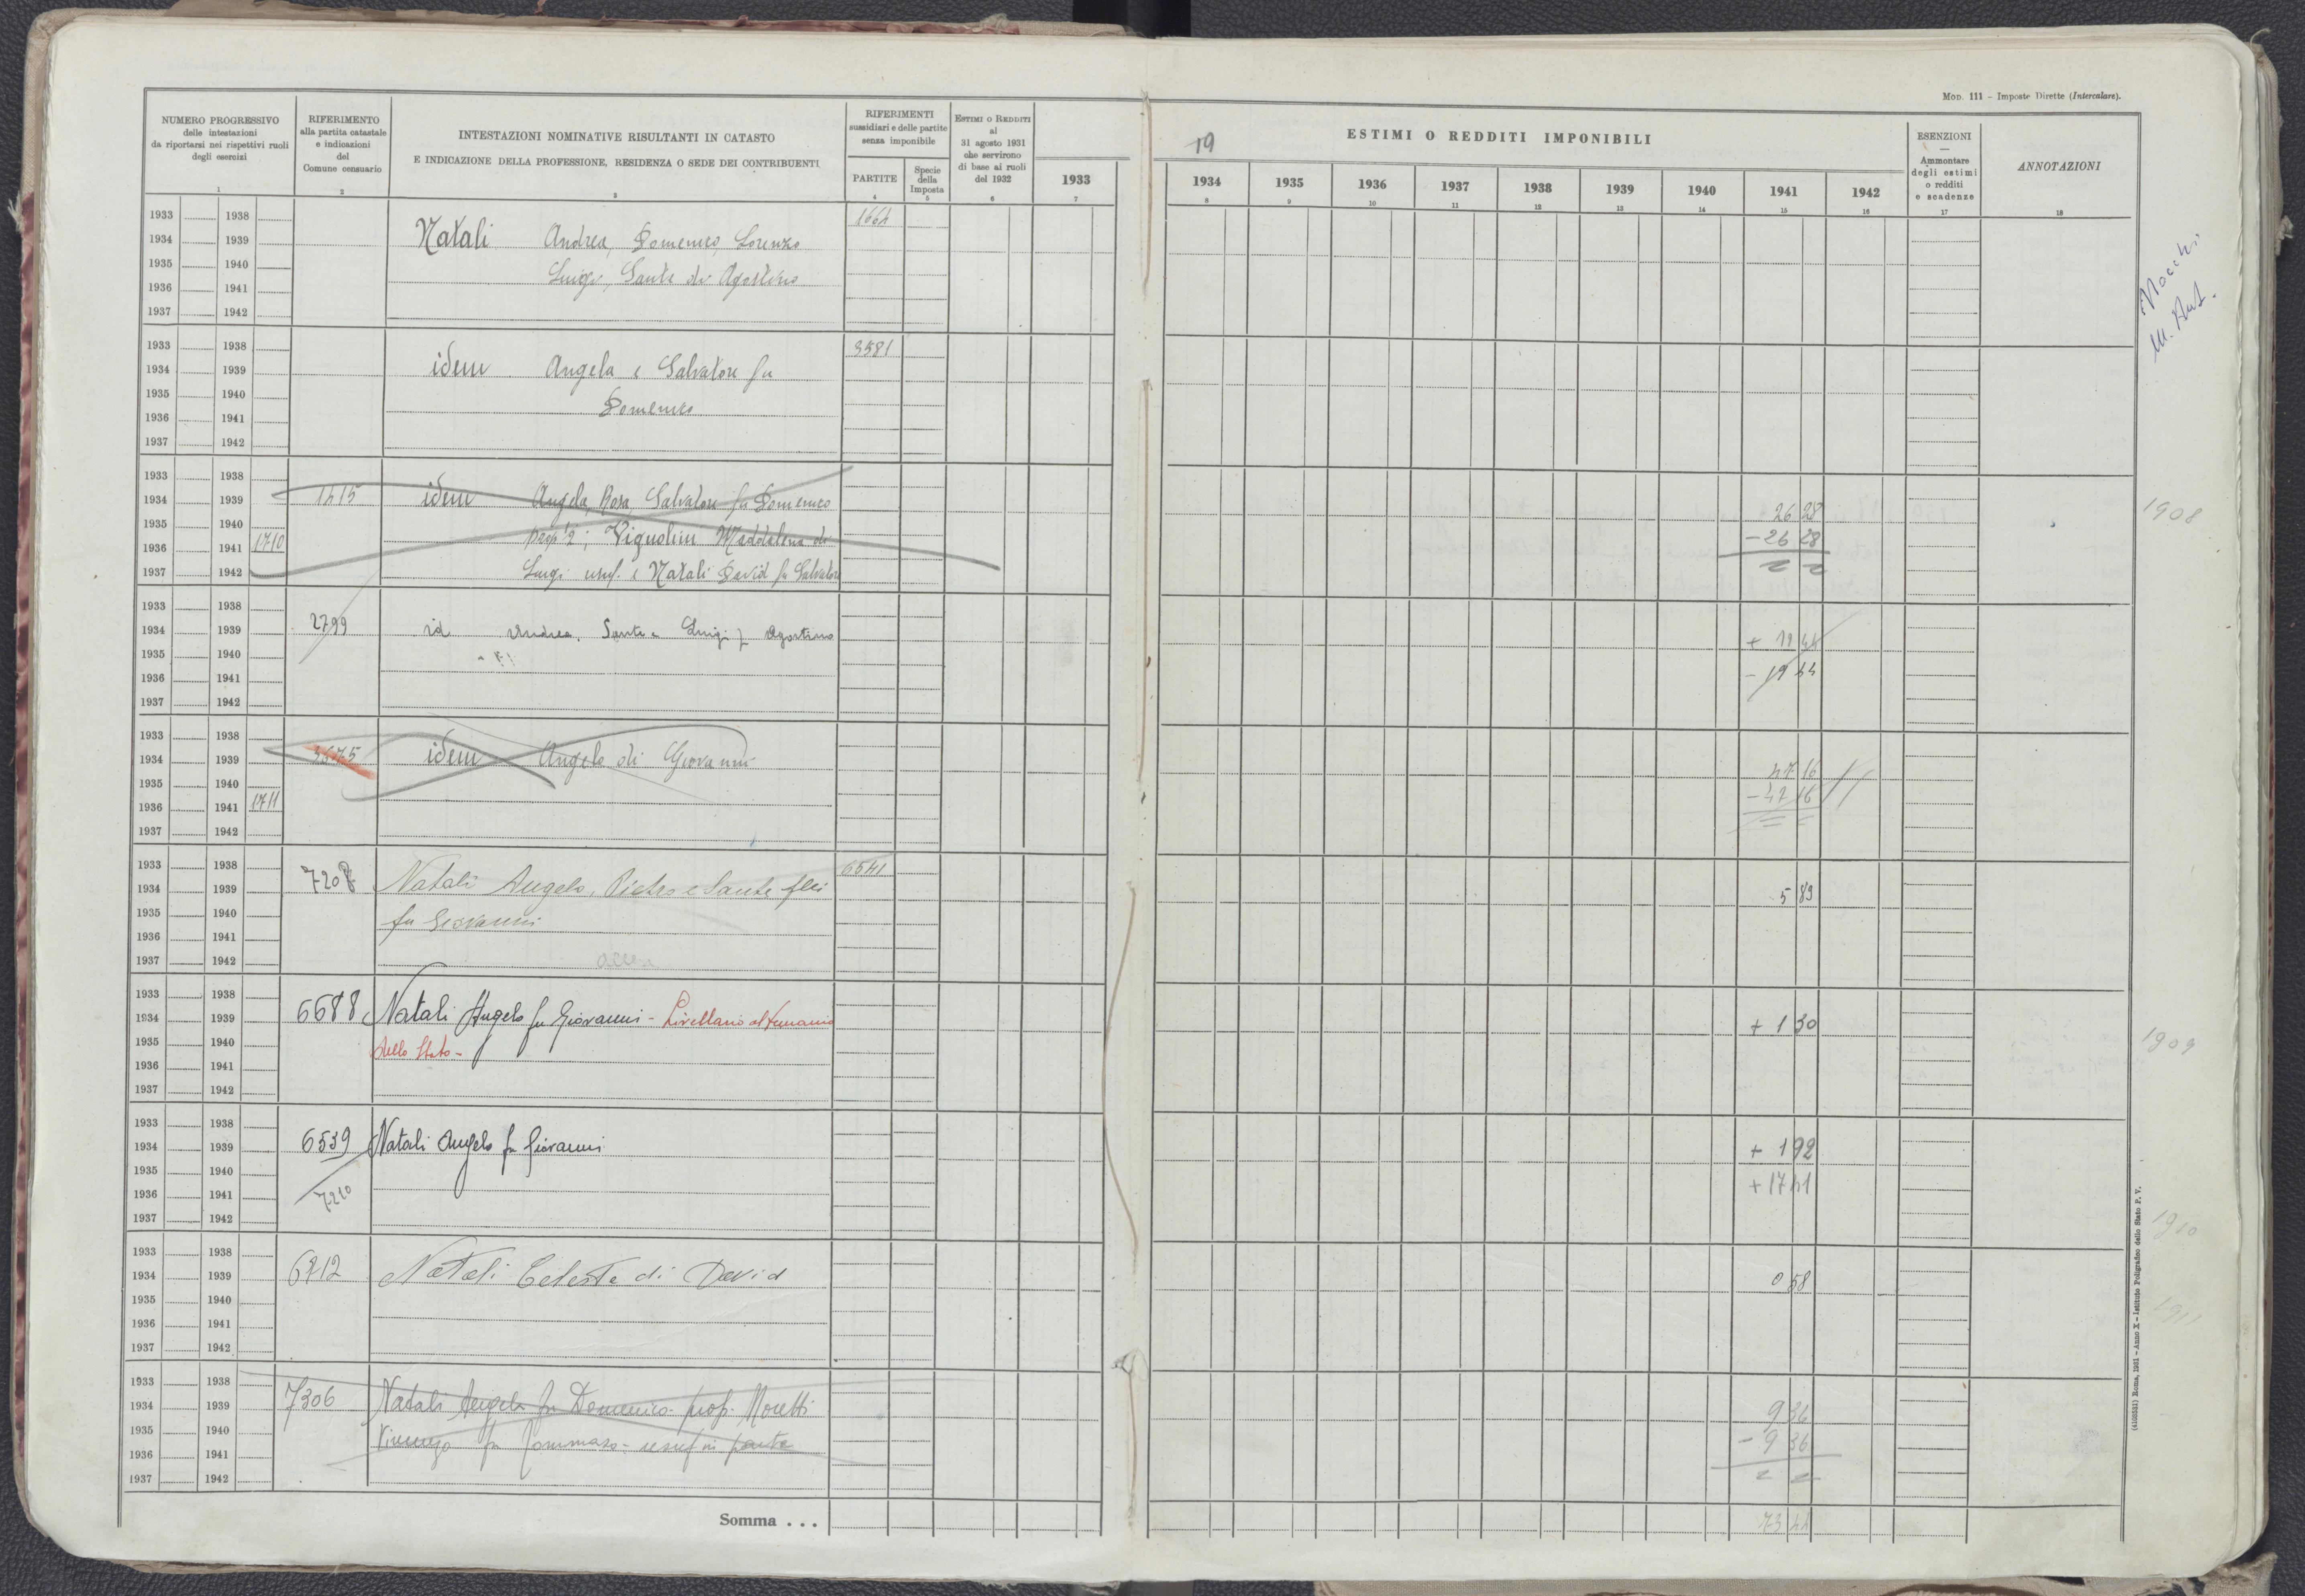 Mod. 111 – Imposte Dirette (Intercalare).
NUMERO PROGRESSIVO
delle intestazioni
da riportarsi nei rispettivi ruoli
degli esercizi
1
RIFERIMENTO
alla partita catastale
e indicazioni
del
Comune censuario
2
INTESTAZIONI NOMINATIVE RISULTANTI IN CATASTO
E INDICAZIONE DELLA PROFESSIONE, RESIDENZA O SEDE DEI CONTRIBUENTI
3
RIFERIMENTI
sussidiari e delle partite
senza imponibile
PARTITE
4
Specie
della
Imposta
5
ESTIMI O REDDITI
al
31 agosto 1931
che servirono
di base ai ruoli
del 1932
6
19
ESTIMI O REDDITI IMPONIBILI
1933 1934 1935 1936 1937 1938 1939 1940 1941 1942
7 8 9 10 11 12 13 14 15 16
ESENZIONI
—
Ammontare
degli estimi
o redditi
e scadenze
17
ANNOTAZIONI
18
1933 1938 1664
1934 1939 Natali Andrea, Domenico, Lorenzo
1935 1940
1936 1941 Luigi, Sante di Agostino
1937 1942
M. Ant.
1933 1938 3581
1934 1939 idem Angela e Salvatore fu
1935 1940
1936 1941 Domenico
1937 1942
1933 1938
1934 1939 1415 idem Angela, Rosa, Salvatore fu Domenico 26 28 1908
1935 1940
1936 1941 1710 Vignolini Maddalena di - 26 28
1937 1942 Luigi usuf. e Natali David fu Salvatore = =
1933 1938
1934 1939 2799 id Andrea, Sante e Luigi f Agostino + 19 44
1935 1940
1936 1941 - 19 44
1937 1942
1933 1938
1934 1939 3675 idem Angelo di Giovanni 47 16
1935 1940
1936 1941 1711 - 47 16
1937 1942 = =
1933 1938 6541
1934 1939 7208 Natali Angelo, Pietro e Sante flli 5 89
1935 1940 fu Giovanni
1936 1941
1937 1942
1933 1938
1934 1939 6688 Natali Angelo fu Giovanni - Livellario al demanio + 1 30
1935 1940 dello Stato - 1909
1936 1941
1937 1942
1933 1938
1934 1939 6539 Natali Angelo fu Giovanni + 1 92
1935 1940
1936 1941 7210 + 17 41
1937 1942
1910
1933 1938
1934 1939 6212 Natali Celeste di David 0 58
1935 1940
1936 1941 1911
1937 1942
1933 1938
1934 1939 7306 Natali Angela fu Domenico - prop. Moretti 9 36
1935 1940
1936 1941 Vincenzo fu Tommaso - usuf in parte - 9 36
1937 1942 = =
Somma . . . 73 44
(4103331) Roma, 1931 – Anno X – Istituto Poligrafico dello Stato P. V.